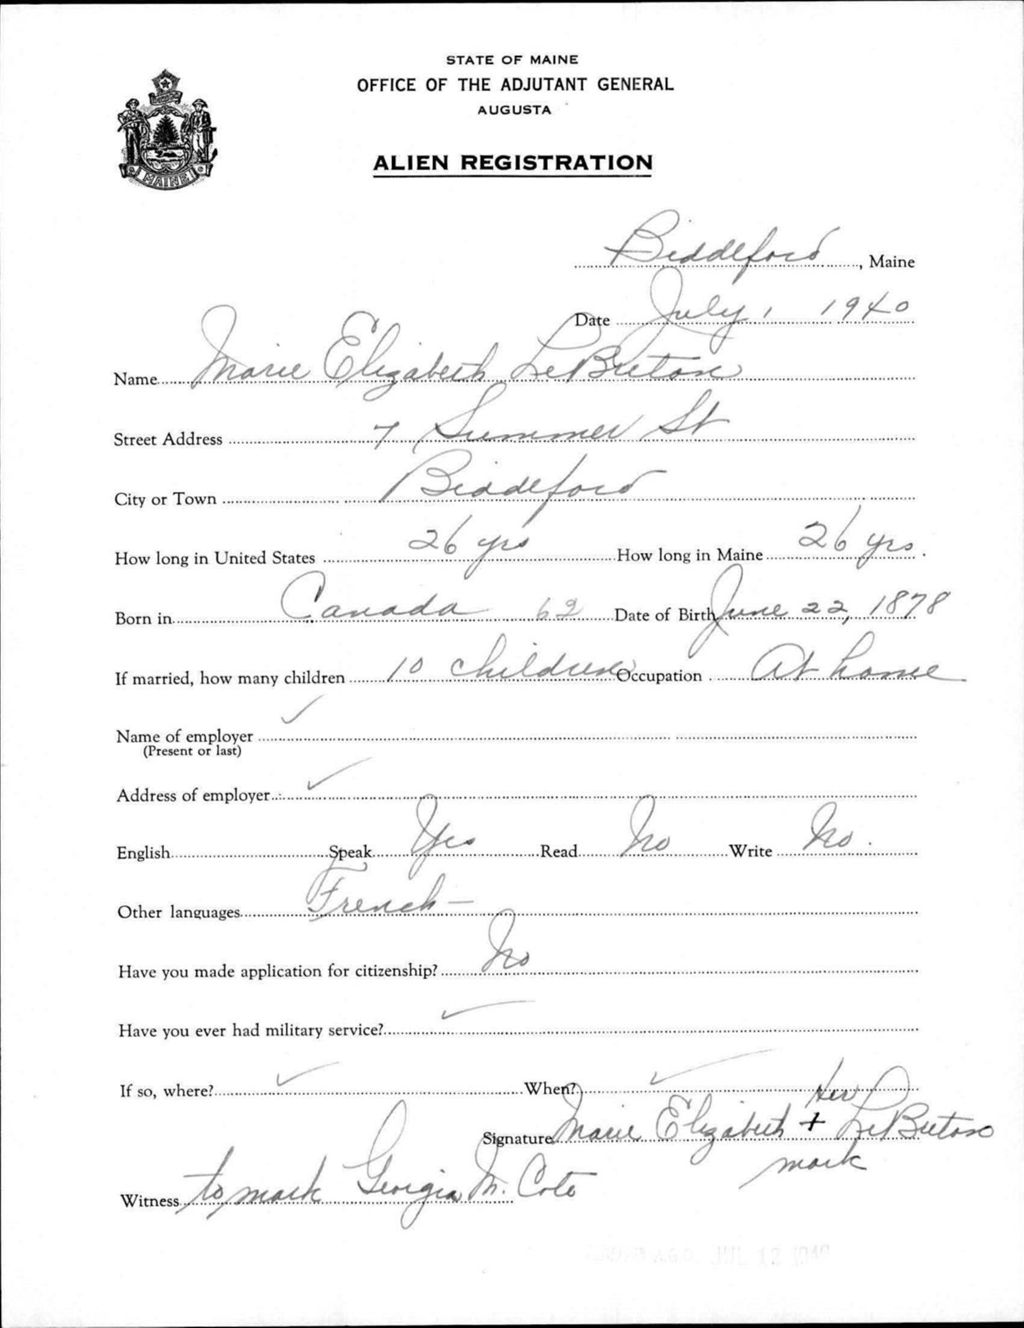 STATE OF MAINE
OFFICE OF THE ADJUTANT GENERAL
AUGUSTA
ALIEN REGISTRATION
MAINE
Biddeford, Maine
Date July 1 1940
Name Marie Elizabeth LeBreton
Street Address 7 Summer St
City or Town Biddeford
How long in United States 26 yrs How long in Maine 26 yrs.
Born in Canada 62 Date of Birth June 22, 1878
If married, how many children 10 children Occupation At home
Name of employer
(Present or last)
Address of employer
English Speak Yes Read No Write No.
Other languages French -
Have you made application for citizenship? No
Have you ever had military service?
If so, where? When?
Her
Signature Marie Elizabeth + LeBreton
mark
Witness to mark Georgia M. Cote
A.G.O. JUL 12 1940